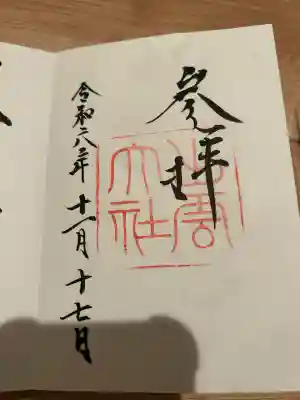 参拝
出雲大社
令和六年 十一月 十七日